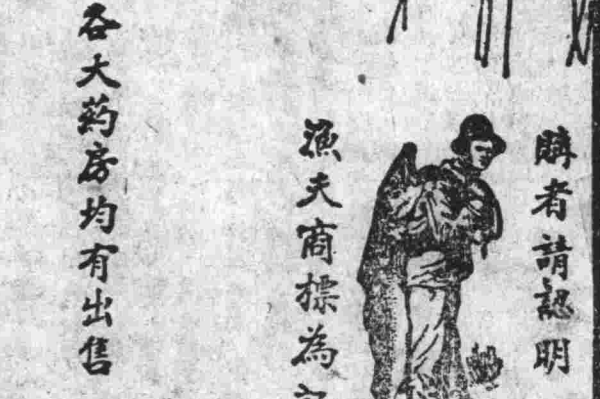 購者請認明
漁夫商標為記
各大葯房均有出售